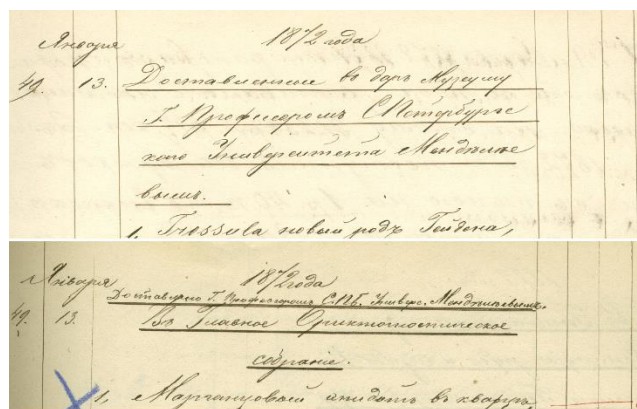 Января 1872 года
49. 13. Доставленное въ даръ Музеуму
Г. Профессоромъ С.Петербургс
каго Университета Менделѣе
вымъ.
1. новый родъ
Января 1872 года
Доставлено Г. Профессоромъ С.П.Б. Универс. Менделѣевымъ.
49. 13. Въ Главное Ориктогностическое
собраніе.
1, Марганцовый въ кварцѣ,